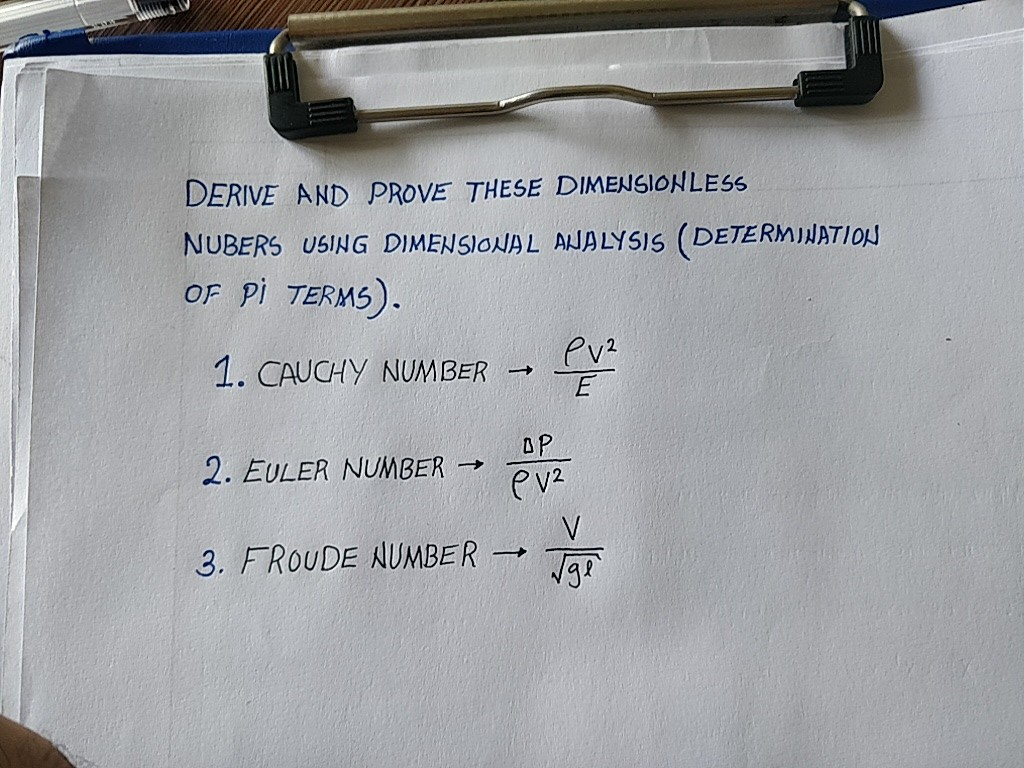 DERIVE AND PROVE THESE DIMENSIONLESS
NUBERS USING DIMENSIONAL ANALYSIS (DETERMINATION
OF Pi TERMS).
1. CAUCHY NUMBER → ρV²/E
2. EULER NUMBER → ΔP/ρV²
3. FROUDE NUMBER → V/√gℓ